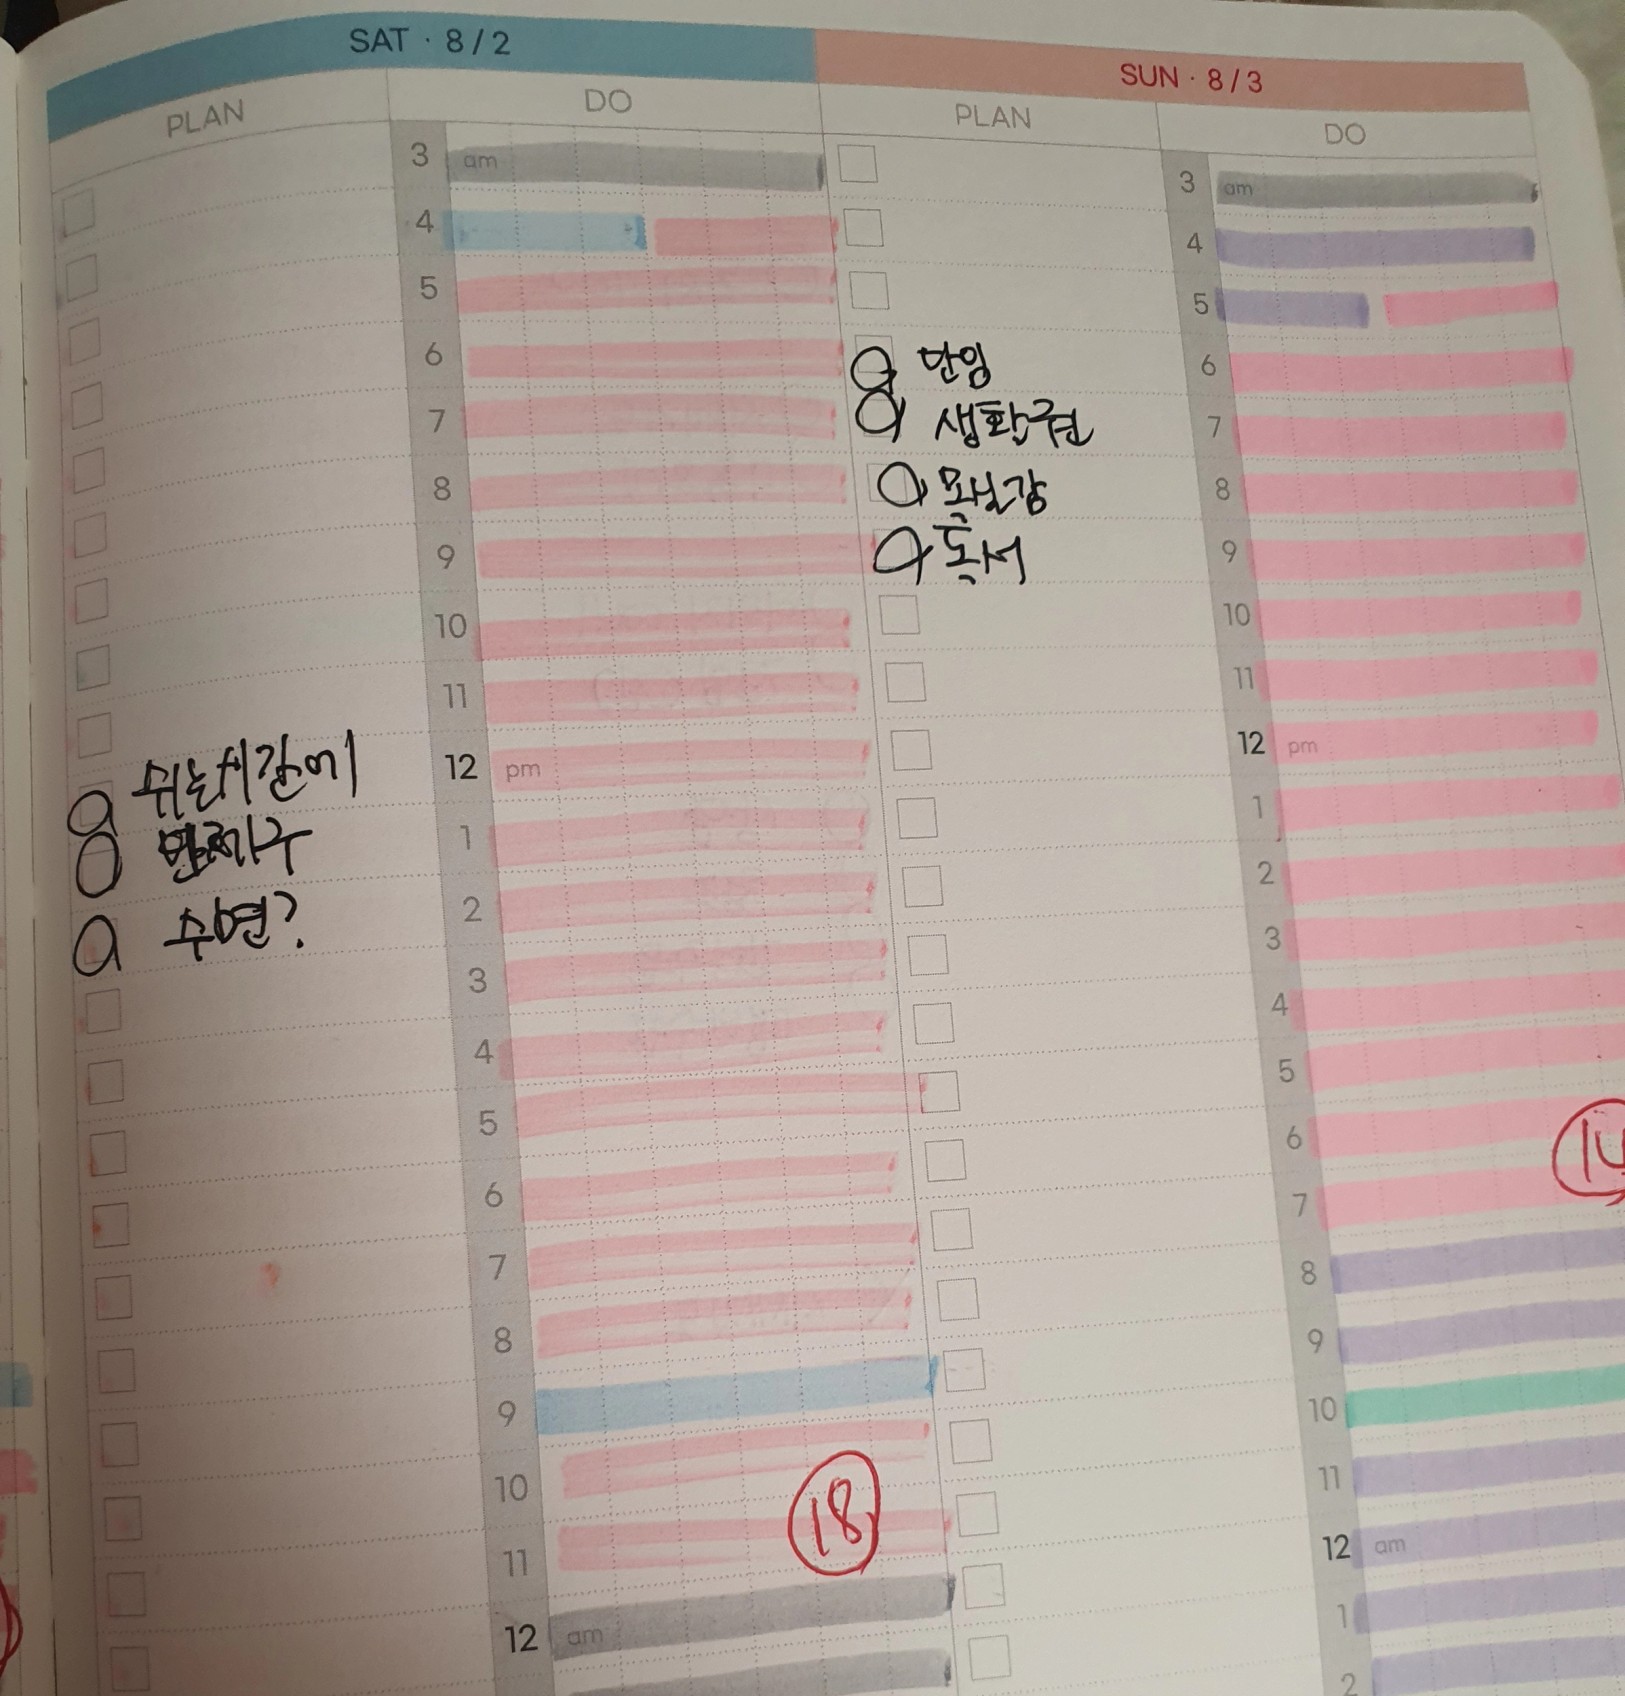 SAT · 8/2
PLAN
DO
3 am
4
5
6
7
8
9
10
11
12 pm
쉬는시간에
1
2
수면?
3
4
5
6
7
8
9
10
18
11
12 am
SUN · 8/3
PLAN
DO
3 am
4
5
6
단잉
7
생활권
8
9
독서
10
11
12 pm
1
2
3
4
5
6
7
8
9
10
11
12 am
1
2